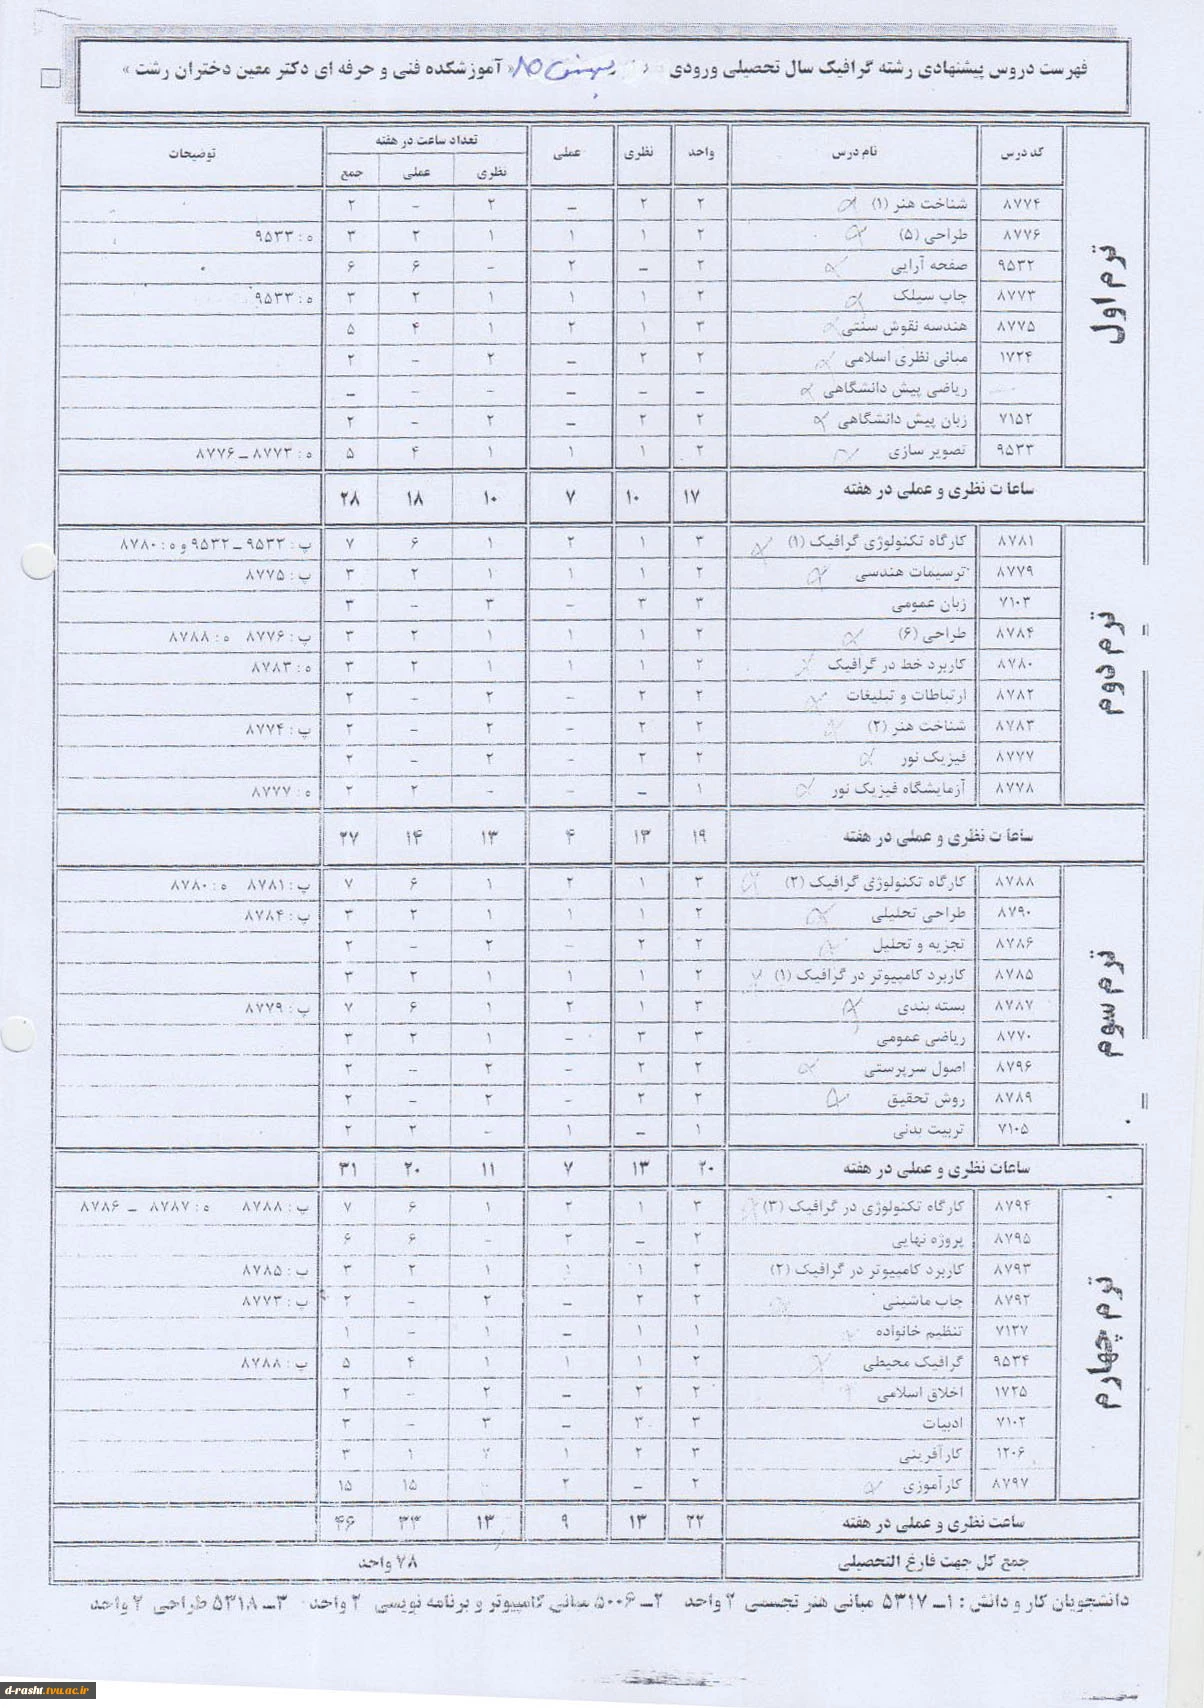 فهرست دروس پیشنهادی رشته گرافیک سال تحصیلی ورودی بهمن ۸۵ « آموزشکده فنی و حرفه ای دکتر معین دختران رشت »
کد درس نام درس واحد نظری عملی تعداد ساعت در هفته توضیحات
نظری عملی جمع
ترم اول
۸۷۷۴ شناخت هنر (۱) ۲ ۲ – ۲ – ۲
۸۷۷۶ طراحی (۵) ۲ ۱ ۱ ۱ ۲ ۳ ه : ۹۵۳۳
۹۵۳۲ صفحه آرایی ۲ – ۲ – ۶ ۶
۸۷۷۳ چاپ سیلک ۲ ۱ ۱ ۱ ۲ ۳ ه : ۹۵۳۳
۸۷۷۵ هندسه نقوش سنتی ۳ ۱ ۲ ۱ ۴ ۵
۱۷۲۴ مبانی نظری اسلامی ۲ ۲ – ۲ – ۲
ریاضی پیش دانشگاهی – – – – – –
۷۱۵۲ زبان پیش دانشگاهی ۲ ۲ – ۲ – ۲
۹۵۳۳ تصویر سازی ۲ ۱ ۱ ۱ ۴ ۵ ه : ۸۷۷۳ – ۸۷۷۶
ساعات نظری و عملی در هفته ۱۷ ۱۰ ۷ ۱۰ ۱۸ ۲۸
ترم دوم
۸۷۸۱ کارگاه تکنولوژی گرافیک (۱) ۳ ۱ ۲ ۱ ۶ ۷ پ : ۹۵۳۳ – ۹۵۳۲ و ه : ۸۷۸۰
۸۷۷۹ ترسیمات هندسی ۲ ۱ ۱ ۱ ۲ ۳ پ : ۸۷۷۵
۷۱۰۳ زبان عمومی ۳ ۳ – ۳ – ۳
۸۷۸۴ طراحی (۶) ۲ ۱ ۱ ۱ ۲ ۳ پ : ۸۷۷۶ ه : ۸۷۸۸
۸۷۸۰ کاربرد خط در گرافیک ۲ ۱ ۱ ۱ ۲ ۳ ه : ۸۷۸۳
۸۷۸۲ ارتباطات و تبلیغات ۲ ۲ – ۲ – ۲
۸۷۸۳ شناخت هنر (۲) ۲ ۲ – ۲ – ۲ پ : ۸۷۷۴
۸۷۷۷ فیزیک نور ۲ ۲ – ۲ – ۲
۸۷۷۸ آزمایشگاه فیزیک نور ۱ – – – ۲ ۲ ه : ۸۷۷۷
ساعات نظری و عملی در هفته ۱۹ ۱۳ ۴ ۱۳ ۱۴ ۲۷
ترم سوم
۸۷۸۸ کارگاه تکنولوژی گرافیک (۲) ۳ ۱ ۲ ۱ ۶ ۷ پ : ۸۷۸۱ ه : ۸۷۸۰
۸۷۹۰ طراحی تحلیلی ۲ ۱ ۱ ۱ ۲ ۳ پ : ۸۷۸۴
۸۷۸۶ تجزیه و تحلیل ۲ ۲ – ۲ – ۲
۸۷۸۵ کاربرد کامپیوتر در گرافیک (۱) ۲ ۱ ۱ ۱ ۲ ۳
۸۷۸۷ بسته بندی ۳ ۱ ۲ ۱ ۶ ۷ پ : ۸۷۷۹
۸۷۷۰ ریاضی عمومی ۳ ۳ – ۱ ۲ ۳
۸۷۹۶ اصول سرپرستی ۲ ۲ – ۲ – ۲
۸۷۸۹ روش تحقیق ۲ ۲ – ۲ – ۲
۷۱۰۵ تربیت بدنی ۱ – ۱ – ۲ ۲
ساعات نظری و عملی در هفته ۲۰ ۱۳ ۷ ۱۱ ۲۰ ۳۱
ترم چهارم
۸۷۹۴ کارگاه تکنولوژی در گرافیک (۳) ۳ ۱ ۲ ۱ ۶ ۷ پ : ۸۷۸۸ ه : ۸۷۸۷ – ۸۷۸۶
۸۷۹۵ پروژه نهایی ۲ – ۲ – ۶ ۶
۸۷۹۳ کاربرد کامپیوتر در گرافیک (۲) ۲ ۱ ۱ ۱ ۲ ۳ پ : ۸۷۸۵
۸۷۹۲ چاپ ماشینی ۲ ۲ – ۲ – ۲ پ : ۸۷۷۳
۷۱۳۷ تنظیم خانواده ۱ ۱ – ۱ – ۱
۹۵۳۴ گرافیک محیطی ۲ ۱ ۱ ۱ ۴ ۵ پ : ۸۷۸۸
۱۷۲۵ اخلاق اسلامی ۲ ۲ – ۲ – ۲
۷۱۰۲ ادبیات ۳ ۳ – ۳ – ۳
۱۲۰۶ کارآفرینی ۳ ۲ ۱ ۲ ۱ ۳
۸۷۹۷ کارآموزی ۲ – ۲ ۱۵ ۱۵
ساعت نظری و عملی در هفته ۲۲ ۱۳ ۹ ۱۳ ۳۳ ۴۶
جمع کل جهت فارغ التحصیلی ۷۸ واحد
دانشجویان کار و دانش : ۱– ۵۳۱۷ مبانی هنر تجسمی ۲ واحد ۲– ۵۰۰۶ مبانی کامپیوتر و برنامه نویسی ۲ واحد ۳– ۵۳۱۸ طراحی ۲ واحد
d-rasht.tvu.ac.ir